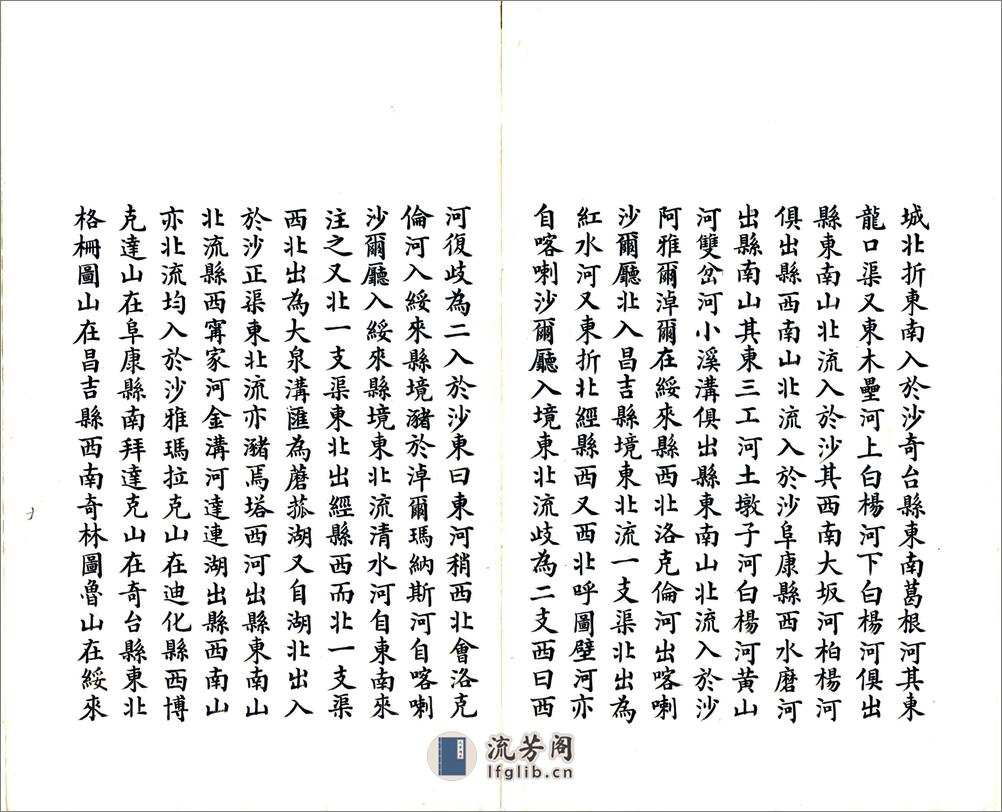 城北折東南入於沙奇台縣東南葛根河其東
龍口渠又東木壘河上白楊河下白楊河俱出
縣東南山北流入於沙其西南大坂河柏楊河
俱出縣西南山北流入於沙阜康縣西水磨河
出縣南山其東三工河土墩子河白楊河黃山
河雙岔河小溪溝俱出縣東南山北流入於沙
阿雅爾淖爾在綏來縣西北洛克倫河出喀喇
沙爾廳北入昌吉縣境東北流一支渠北出為
紅水河又東折北經縣西又西北呼圖壁河亦
自喀喇沙爾廳入境東北流歧為二支西曰西
河復歧為二入於沙東曰東河稍西北會洛克
倫河入綏來縣境豬於淖爾瑪納斯河自喀喇
沙爾廳入綏來縣境東北流清水河自東南來
注之又北一支渠東北出經縣西而北一支渠
西北出為大泉溝匯為蘑菰湖又自湖北出入
於沙正渠東北流亦瀦焉塔西河出縣東南山
北流縣西甯家河金溝河達連湖出縣西南山
亦北流均入於沙雅瑪拉克山在迪化縣西博
克達山在阜康縣南拜達克山在奇台縣東北
格柵圖山在昌吉縣西南奇林圖魯山在綏來
流芳阁
lfglib.cn